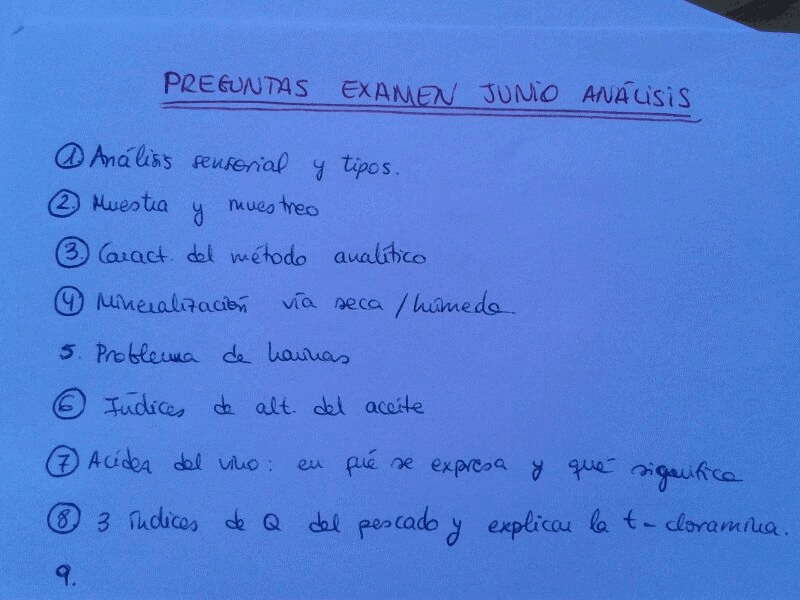 PREGUNTAS EXAMEN JUNIO ANÁLISIS
① Análisis sensorial y tipos.
②. Muestra y muestreo
③. Caract. del método analítico
④ Mineralización vía seca / húmeda.
5. Problema de harinas
⑥ Índices de alt. del aceite
⑦ Acidez del vino: en qué se expresa y qué significa
⑧ 3 índices de Q del pescado y explicar la t-cloramina.
9.